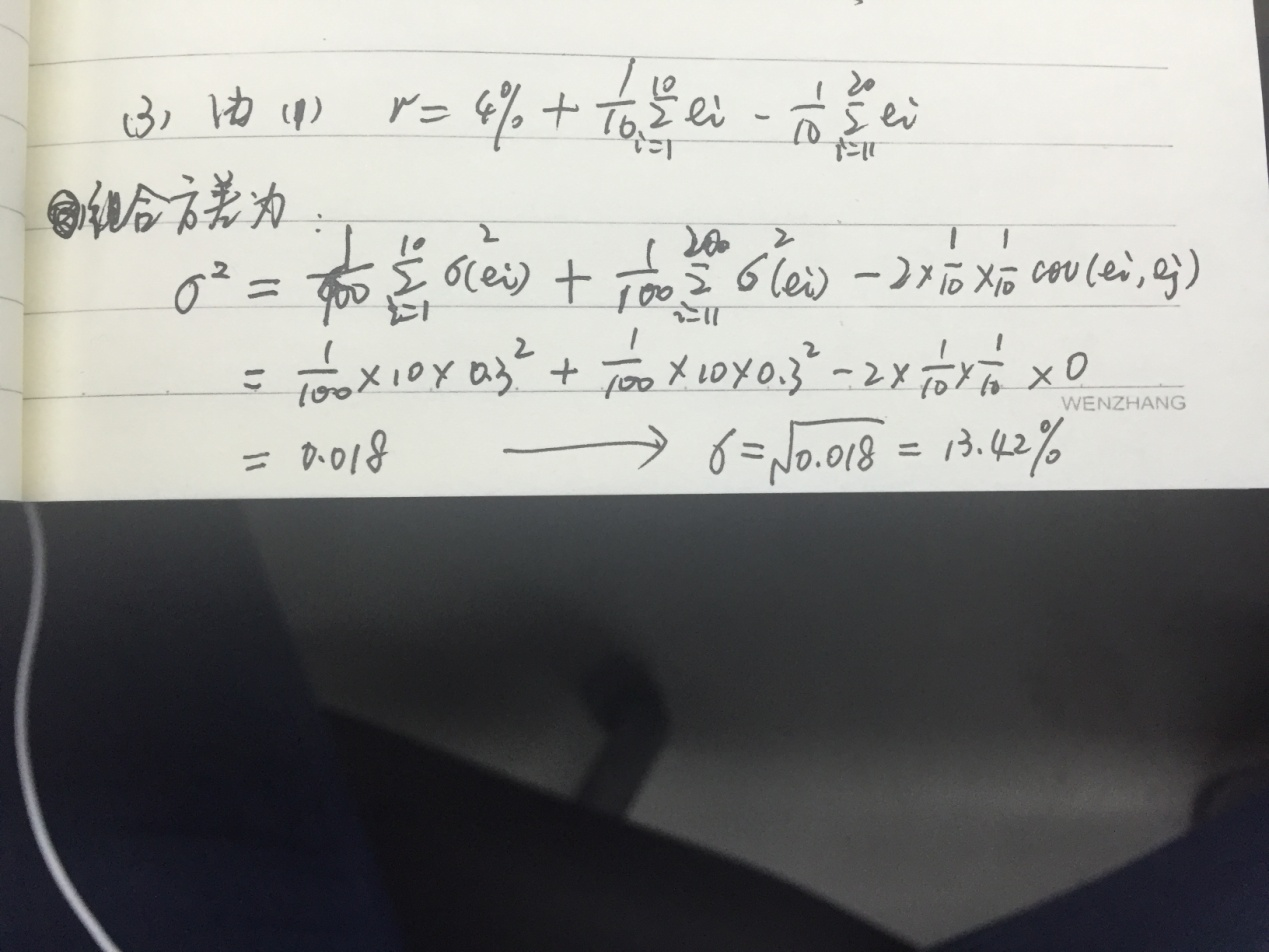 (3) 由(1) r = 4% + 1/10 Σ_{i=1}^{10} ei - 1/10 Σ_{i=11}^{20} ei
组合方差为:
σ² = 1/100 Σ_{i=1}^{10} σ²(ei) + 1/100 Σ_{i=11}^{20} σ²(ei) - 2×1/10×1/10 cov(ei, ej)
= 1/100 ×10×0.3² + 1/100 ×10×0.3² - 2×1/10×1/10 ×0
WENZHANG
= 0.018 ⟶ σ = √0.018 = 13.42%